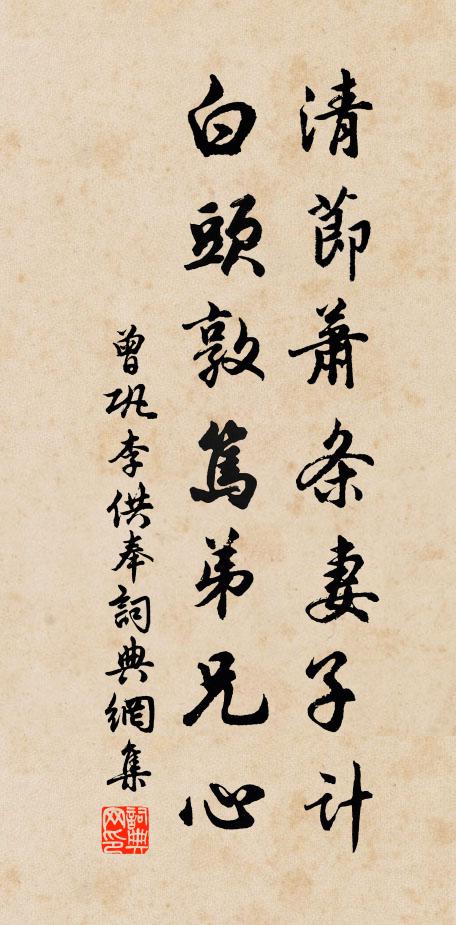 清節蕭条妻子計
白頭敦篤弟兄心
曾巩李供奉詞典網集
詞典网印